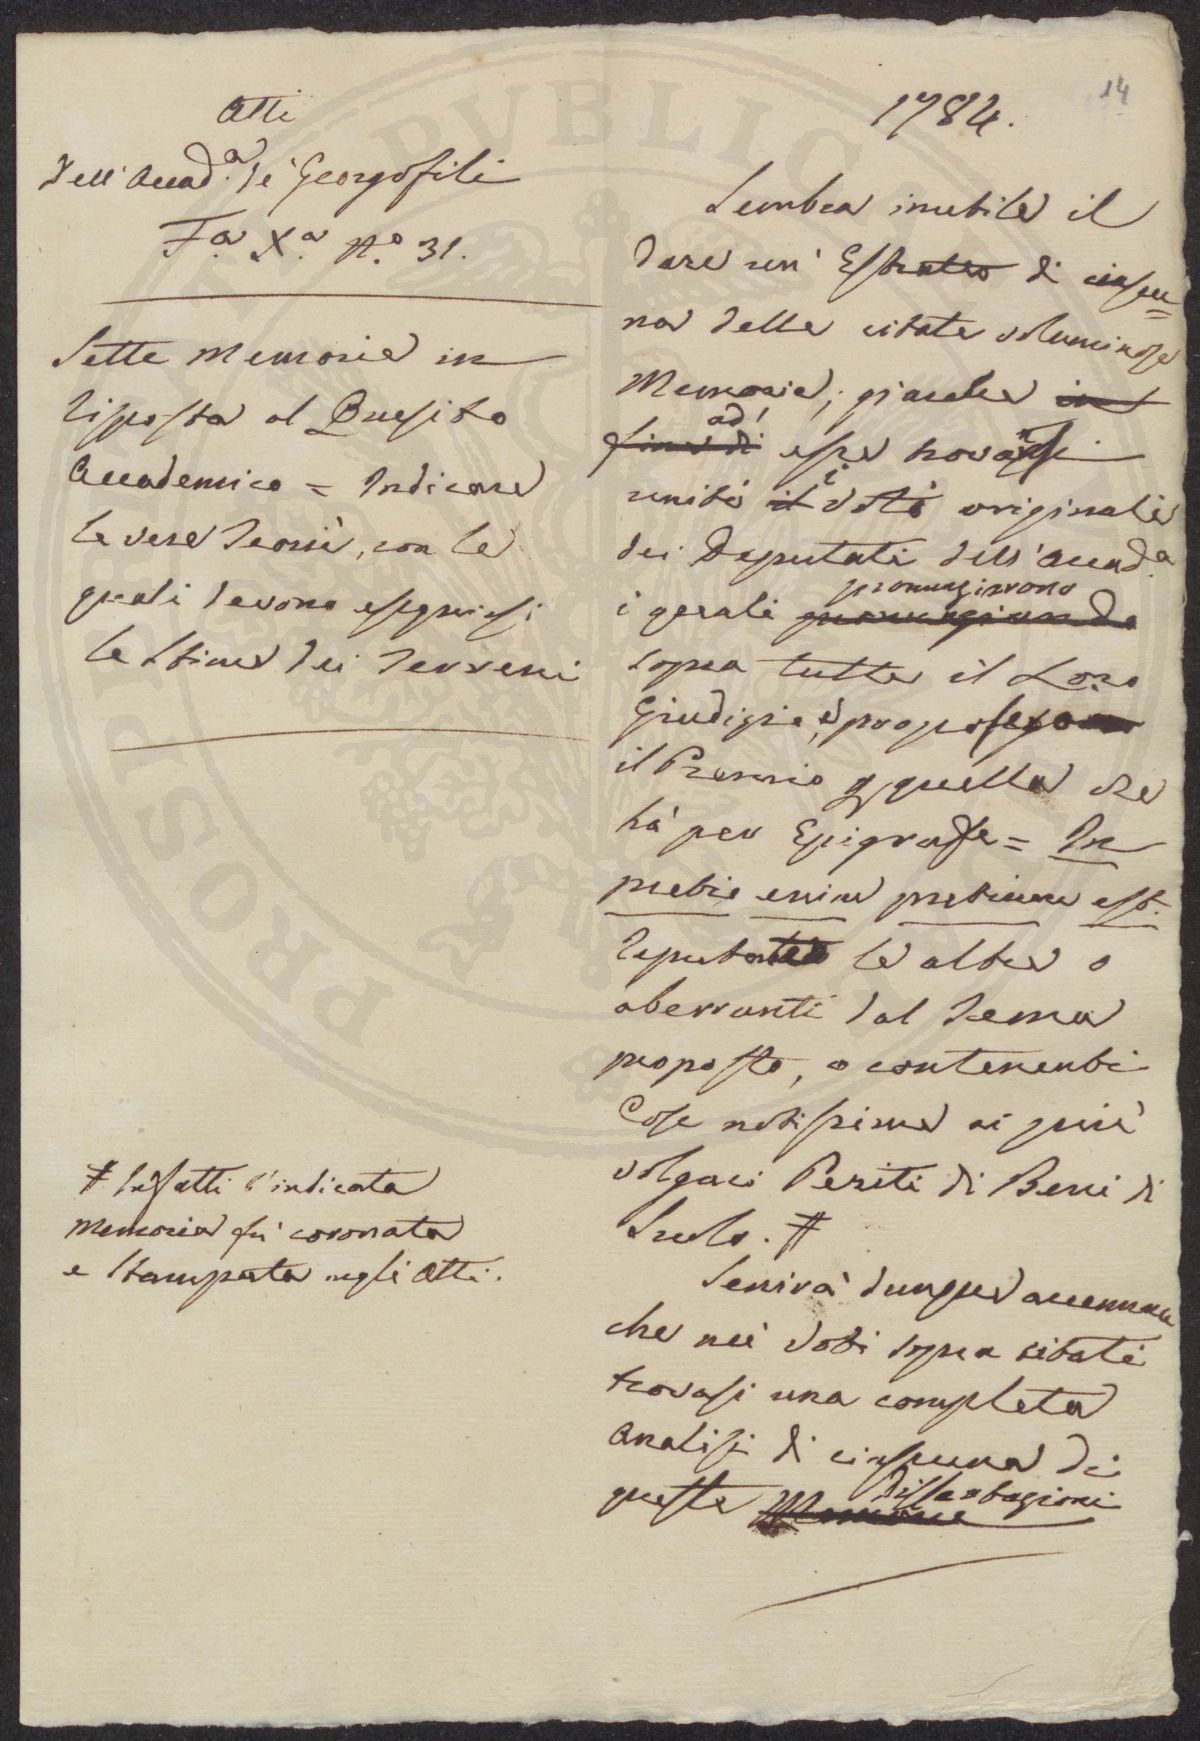 14
Atti
Dell'Accad.a de' Georgofili
F.a X.a N.o 31.
Sette Memorie in
risposta al Quesito
Accademico = Indicare
le vere Teorie, con le
quali devono eseguirsi
le Stime dei Terreni
# Infatti l'indicata
Memoria fù coronata
e Stampata negli Atti.
1784.
Sembra inutile il
dare un' Estratto di ciascu=
na delle citate voluminose
Memorie; giacche
ad esse trovansi
uniti i Voti originali
dei Deputati dell'Accad.a
pronunziarono
i quali pronunziando
sopra tutte il Loro
Giudizio, e proposero
il Premio p quella che
hà per Epigrafe = In
pretio enim pretium est.
reputate le altre o
aberranti dal Tema
proposto, o contenenti
Cose notissime ai più
volgari Periti di Beni di
Suolo. #
Servirà dunque accennare
che nei Voti sopra citati
trovasi una completa
Analisi di ciascuna di
Dissertazioni
queste Memorie
PUBLICAE
PROSPERITATI